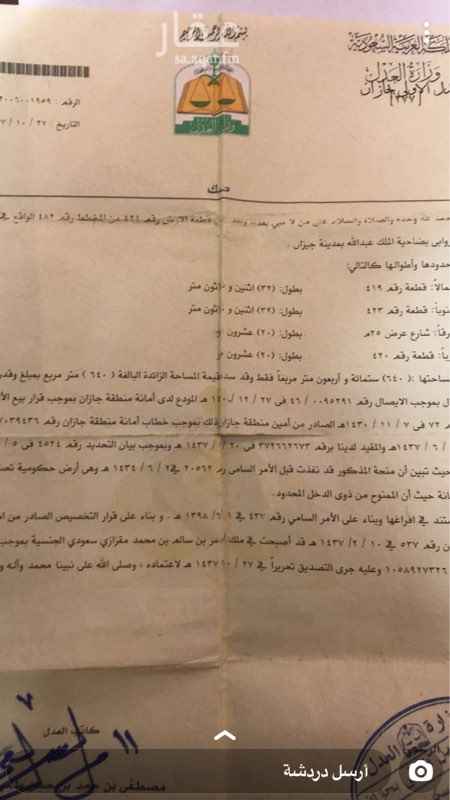 بسم الله الرحمن الرحيم
عقار
sa.aqar.fm
المملكة العربية السعودية
وزارة العدل
الأولى جازان
وزارة العدل
الرقم :
التاريخ : ٢٧ / ١٠ /
صك
لله وحده والصلاة والسلام على من لا نبي بعده وبعد قطعة الارض رقم ٤٢١ من المخطط رقم ٤٨٢ الواقع في
روابي بضاحية الملك عبدالله بمدينة جيزان .
حدودها وأطوالها كالتالي:
قطعة رقم ٤١٩ بطول: (٣٢) اثنين و ثلاثون متر
قطعة رقم ٤٢٣ بطول: (٣٢) اثنين و ثلاثون متر
شارع عرض ٢٥م بطول: (٢٠) عشرون
قطعة رقم ٤٢٠ بطول: (٢٠) عشرون
(٦٤٠) ستمائة و أربعون متر مربعاً فقط وقد سدد قيمة المساحة الزائدة البالغة ( ٦٤٠ ) متر مربع بمبلغ
بموجب الايصال رقم ٠٠٩٥٢٩١ / ٤٦ في ٢٧ / ١٢ / المودع لدى أمانة منطقة جازان بموجب قرار بيع
٧٢ في ٧ / ١١ / ١٤٣٠هـ الصادر من أمين منطقة جازان وذلك بموجب خطاب أمانة منطقة جازان رقم
/ ٦ / ١٤٣٧هـ والمقيد لدينا برقم ٣٧٢٦٦٢٦٧٣ في ٢٠ / / ١٤٣٧ هـ وبموجب بيان التحديد رقم ٤٥٢٤ في ٥ /
حيث تبين أن منحة المذكور قد نفذت قبل الأمر السامي رقم ٢٠٥٦٢ في ٢ / ٦ / ١٤٣٤ هـ وهي أرض حكومية
حيث أن الممنوح من ذوي الدخل المحدود.
في افراغها وبناء على الأمر السامي رقم ٤٣٧ في ١ / ٦ / ١٣٩٨ هـ . و بناء على قرار التخصيص الصادر من
رقم ٥٣٧ في ١٠ / ٢ / ١٤٣٧ هـ قد أصبحت في ملك بن سالم بن محمد مقرازي سعودي الجنسية بموجب
١٠٥٨٩٢٧٣٢٦ وعليه جرى التصديق تحريراً في ٢٧ / ١٠ / ١٤٣٧ هـ لاعتماده ، وصلى الله على نبينا محمد وآله
كاتب العدل
مصطفى بن حمد بن
أرسل دردشة